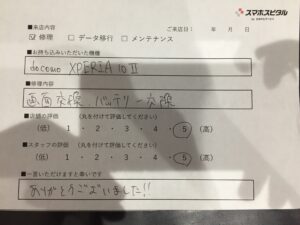 スマホスピタル
■ご来店内容
ご来店日： 年 月 日
☑修理 □データ移行 □メンテナンス
■お持ち込みいただいた機種
docomo XPERIA 10 II
■修理内容
画面交換、バッテリー交換
■店舗の評価 (丸を付けて評価してください)
(低) 1 ・ 2 ・ 3 ・ 4 ・ 5 (高)
■スタッフの評価 (丸を付けて評価してください)
(低) 1 ・ 2 ・ 3 ・ 4 ・ 5 (高)
■一言いただけますと幸いです
ありがとうございました!!